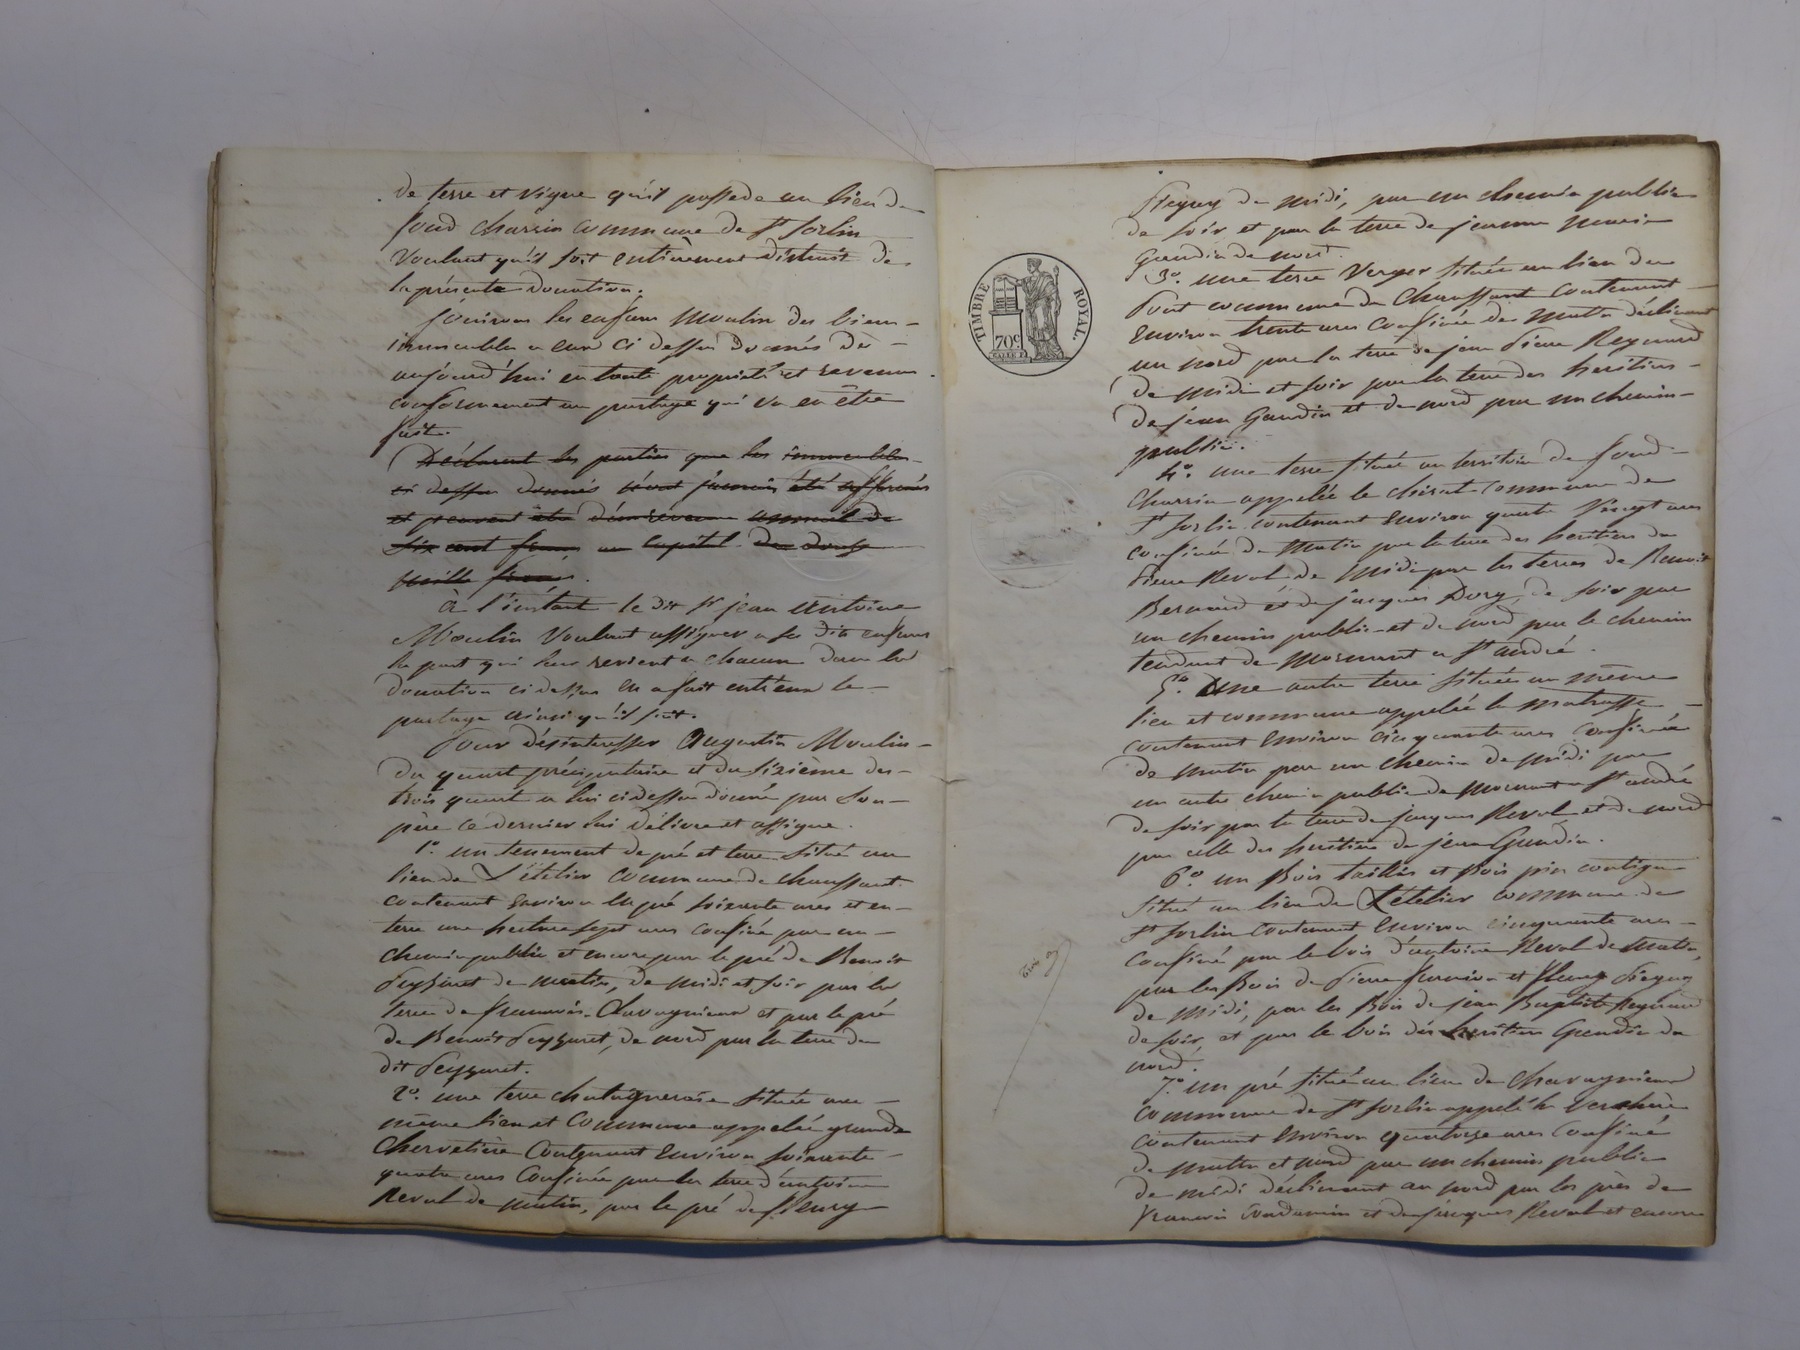 de terre et vigne qu'il possede au lieu de
fond Charrin commune de St Sorlin
voulant qu'il soit entièrement distrait de
la présente donation.
Jouiront les enfans Moulin des biens
immeubles a eux ci dessus donnés dès
aujourd'hui en toute propriété et revenus
conformement au partage qui va en être
fait.
Déclarent les parties que les immeubles
ci dessus donnés n'ont jamais été affermés
et peuvent être d'un revenu annuel de
six cent francs au capital de douze
mille francs.
à l'instant le dit Sr jean Antoine
Moulin voulant assigner a ses dits enfans
la part qui leur revient a chacun dans la
donation ci dessus en a fait entr'eux le
partage ainsi qu'il suit.
Pour désinteresser Augustin Moulin
du quart préciputaire et du sixième des
trois quart a lui ci dessus donné par son
père ce dernier lui délivre et assigne.
1o. un tenement de pré et terre situé au
lieu de L'ételier commune de Chaussant
contenant environ en pré soixante ares et en
terre une hectare sept ares confiné par un
chemin public et encore par le pré de Benoit
Peyzaret de matin, de midi et soir par la
terre de francois Chavagnieux et par le pré
de Benoit Peyzaret, de nord par la terre du
dit Peyzaret.
2o. une terre chataigneraie située au
même lieu et commune appelée grande
Chervetière contenant environ soixante
quatre ares confinée par la terre d'antoine
Reval de matin, par le pré de fleury
TIMBRE ROYAL
70c.
Pieguy de midi, par un chemin public
de soir et par la terre de jeanne marie
Gaudin de nord.
3o. une terre verger située au lieu du
Pont commune de Chaussant contenant
environ trente ares confinée de matin déclinant
au nord par la terre de jean Pierre Reynard
de midi et soir par la terre des heritiers
de jean Gaudin et de nord par un chemin
public.
4o. une terre située au territoire de fond
Charrin appelée le chirat commune de
St Sorlin contenant environ quatre vingt ares
confinée de matin par la terre des heritiers de
Pierre Reval de midi par les terres de Benoit
Bernard et de jacques Dury, de soir par
un chemin public et de nord par le chemin
tendant de Mornant a St andré.
5o. une autre terre située au même
lieu et commune appelée la matrasse
contenant environ cinquante ares confinée
de matin par un chemin de midi par
un autre chemin public de Mornant a St andré
de soir par la terre de jacques Reval et de nord
par celle des heritiers de jean Gaudin.
6o. un Bois taillis et Bois pin contigu
situé au lieu de L'ételier commune de
St Sorlin contenant environ cinquante ares
confiné par le bois d'antoine Reval de matin,
par les Bois de Pierre et fleury Pieguy
de midi, par les Bois de jean Baptiste Reynard
de soir, et par le bois des heritiers Gaudin de
nord.
7o. un pré situé au lieu de Chavagnieux
commune de St Sorlin appelé la verchère
contenant environ quatorze ares confiné
de matin et nord par un chemin public
de midi déclinant au nord par les prés de
francois et de jacques Reval et encore